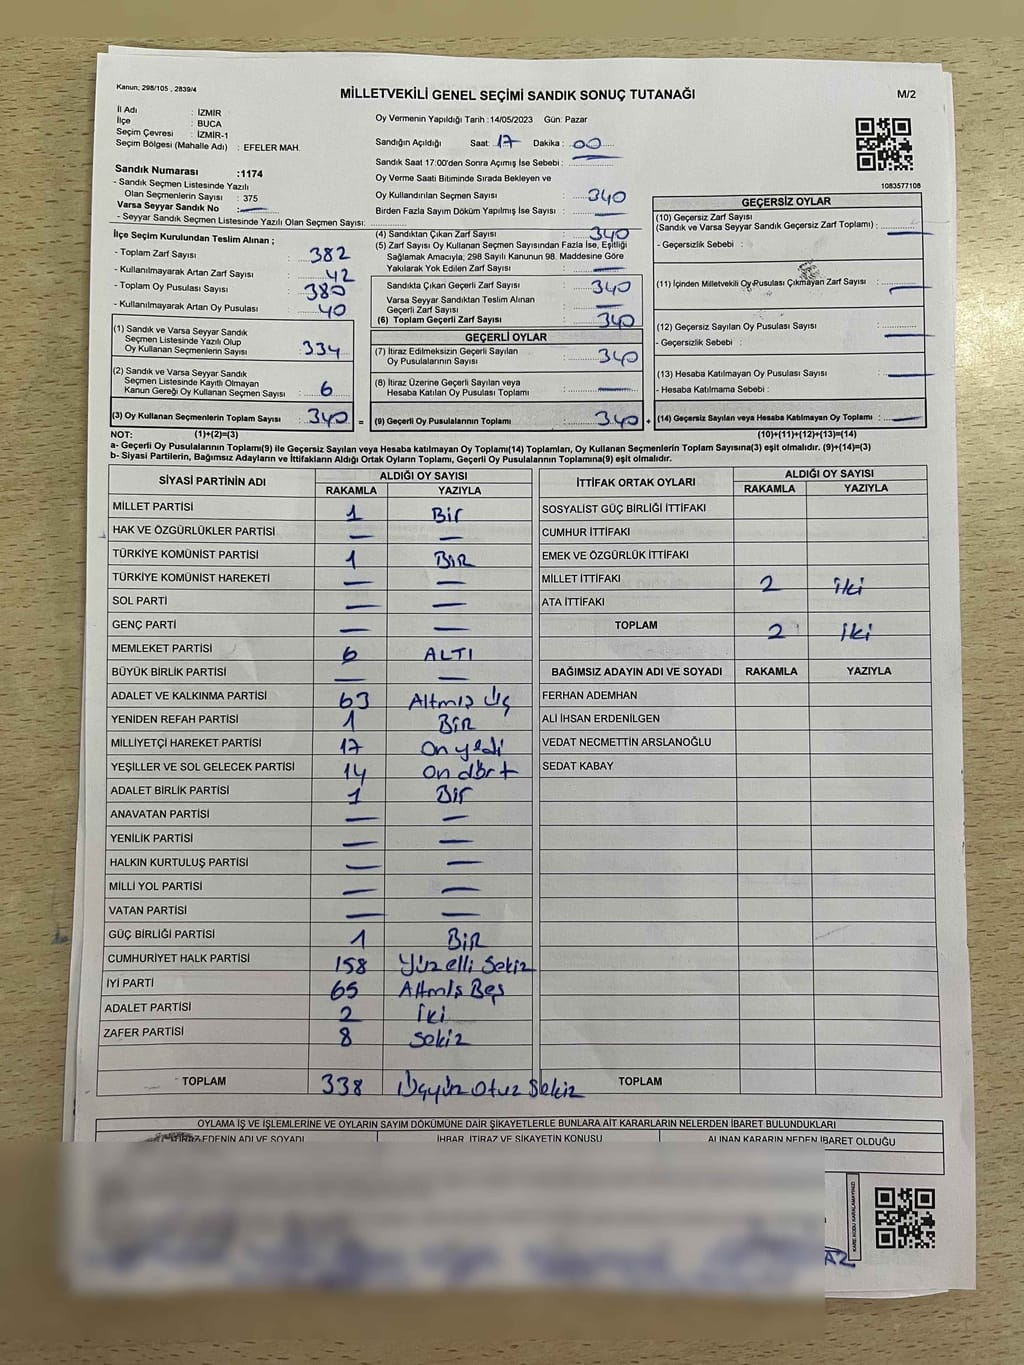 Kanun; 298/105 , 2839/4
MİLLETVEKİLİ GENEL SEÇİMİ SANDIK SONUÇ TUTANAĞI
M/2
İl Adı : İZMİR
İlçe : BUCA
Seçim Çevresi : İZMİR-1
Seçim Bölgesi (Mahalle Adı) : EFELER MAH.
Sandık Numarası :1174
- Sandık Seçmen Listesinde Yazılı
Olan Seçmenlerin Sayısı : 375
Varsa Seyyar Sandık No : —
- Seyyar Sandık Seçmen Listesinde Yazılı Olan Seçmen Sayısı:
Oy Vermenin Yapıldığı Tarih : 14/05/2023 Gün: Pazar
Sandığın Açıldığı Saat: 17 Dakika : 00
Sandık Saat 17:00'den Sonra Açımış İse Sebebi : —
Oy Verme Saati Bitiminde Sırada Bekleyen ve
Oy Kullandırılan Seçmen Sayısı : 340
Birden Fazla Sayım Döküm Yapılmış İse Sayısı : —
1083577108
İlçe Seçim Kurulundan Teslim Alınan ;
- Toplam Zarf Sayısı : 382
- Kullanılmayarak Artan Zarf Sayısı : 42
- Toplam Oy Pusulası Sayısı : 380
- Kullanılmayarak Artan Oy Pusulası : 40
(1) Sandık ve Varsa Seyyar Sandık
Seçmen Listesinde Yazılı Olup
Oy Kullanan Seçmenlerin Sayısı : 334
(2) Sandık ve Varsa Seyyar Sandık
Seçmen Listesinde Kayıtlı Olmayan
Kanun Gereği Oy Kullanan Seçmen Sayısı : 6
(3) Oy Kullanan Seçmenlerin Toplam Sayısı : 340 =
(1)+(2)=(3)
(4) Sandıktan Çıkan Zarf Sayısı : 340
(5) Zarf Sayısı Oy Kullanan Seçmen Sayısından Fazla İse, Eşitliği
Sağlamak Amacıyla, 298 Sayılı Kanunun 98. Maddesine Göre
Yakılarak Yok Edilen Zarf Sayısı : —
Sandıkta Çıkan Geçerli Zarf Sayısı : 340
Varsa Seyyar Sandıktan Teslim Alınan
Geçerli Zarf Sayısı : —
(6) Toplam Geçerli Zarf Sayısı : 340
GEÇERLİ OYLAR
(7) İtiraz Edilmeksizin Geçerli Sayılan
Oy Pusulalarının Sayısı : 340
(8) İtiraz Üzerine Geçerli Sayılan veya
Hesaba Katılan Oy Pusulası Toplamı : —
(9) Geçerli Oy Pusulalarının Toplamı : 340 +
GEÇERSİZ OYLAR
(10) Geçersiz Zarf Sayısı
(Sandık ve Varsa Seyyar Sandık Geçersiz Zarf Toplamı) : —
- Geçersizlik Sebebi :
(11) İçinden Milletvekili Oy Pusulası Çıkmayan Zarf Sayısı : —
(12) Geçersiz Sayılan Oy Pusulası Sayısı : —
- Geçersizlik Sebebi :
(13) Hesaba Katılmayan Oy Pusulası Sayısı : —
- Hesaba Katılmama Sebebi :
(14) Geçersiz Sayılan veya Hesaba Katılmayan Oy Toplamı : —
(10)+(11)+(12)+(13)=(14)
NOT:
a- Geçerli Oy Pusulalarının Toplamı(9) ile Geçersiz Sayılan veya Hesaba katılmayan Oy Toplamı(14) Toplamları, Oy Kullanan Seçmenlerin Toplam Sayısına(3) eşit olmalıdır. (9)+(14)=(3)
b- Siyasi Partilerin, Bağımsız Adayların ve İttifakların Aldığı Ortak Oyların Toplamı, Geçerli Oy Pusulalarının Toplamına(9) eşit olmalıdır.
SİYASİ PARTİNİN ADI ALDIĞI OY SAYISI
RAKAMLA YAZIYLA
MİLLET PARTİSİ 1 Bir
HAK VE ÖZGÜRLÜKLER PARTİSİ — —
TÜRKİYE KOMÜNİST PARTİSİ 1 BİR
TÜRKİYE KOMÜNİST HAREKETİ — —
SOL PARTİ — —
GENÇ PARTİ — —
MEMLEKET PARTİSİ 6 ALTI
BÜYÜK BİRLİK PARTİSİ — —
ADALET VE KALKINMA PARTİSİ 63 Altmış Üç
YENİDEN REFAH PARTİSİ 1 BİR
MİLLİYETÇİ HAREKET PARTİSİ 17 On yedi
YEŞİLLER VE SOL GELECEK PARTİSİ 14 On dört
ADALET BİRLİK PARTİSİ 1 Bir
ANAVATAN PARTİSİ — —
YENİLİK PARTİSİ — —
HALKIN KURTULUŞ PARTİSİ — —
MİLLİ YOL PARTİSİ — —
VATAN PARTİSİ — —
GÜÇ BİRLİĞİ PARTİSİ 1 BİR
CUMHURİYET HALK PARTİSİ 158 Yüz elli Sekiz
İYİ PARTİ 65 Altmış Beş
ADALET PARTİSİ 2 İki
ZAFER PARTİSİ 8 Sekiz
TOPLAM 338 Üçyüz Otuz Sekiz
İTTİFAK ORTAK OYLARI ALDIĞI OY SAYISI
RAKAMLA YAZIYLA
SOSYALİST GÜÇ BİRLİĞİ İTTİFAKI
CUMHUR İTTİFAKI
EMEK VE ÖZGÜRLÜK İTTİFAKI
MİLLET İTTİFAKI 2 İki
ATA İTTİFAKI
TOPLAM 2 İki
BAĞIMSIZ ADAYIN ADI VE SOYADI RAKAMLA YAZIYLA
FERHAN ADEMHAN
ALİ İHSAN ERDENİLGEN
VEDAT NECMETTİN ARSLANOĞLU
SEDAT KABAY
TOPLAM
OYLAMA İŞ VE İŞLEMLERİNE VE OYLARIN SAYIM DÖKÜMÜNE DAİR ŞİKAYETLERLE BUNLARA AİT KARARLARIN NELERDEN İBARET BULUNDUKLARI
İTİRAZ EDENİN ADI VE SOYADI İHBAR, İTİRAZ VE ŞİKAYETİN KONUSU ALINAN KARARIN NEDEN İBARET OLDUĞU
KARE KODU KARALAMAYINIZ!